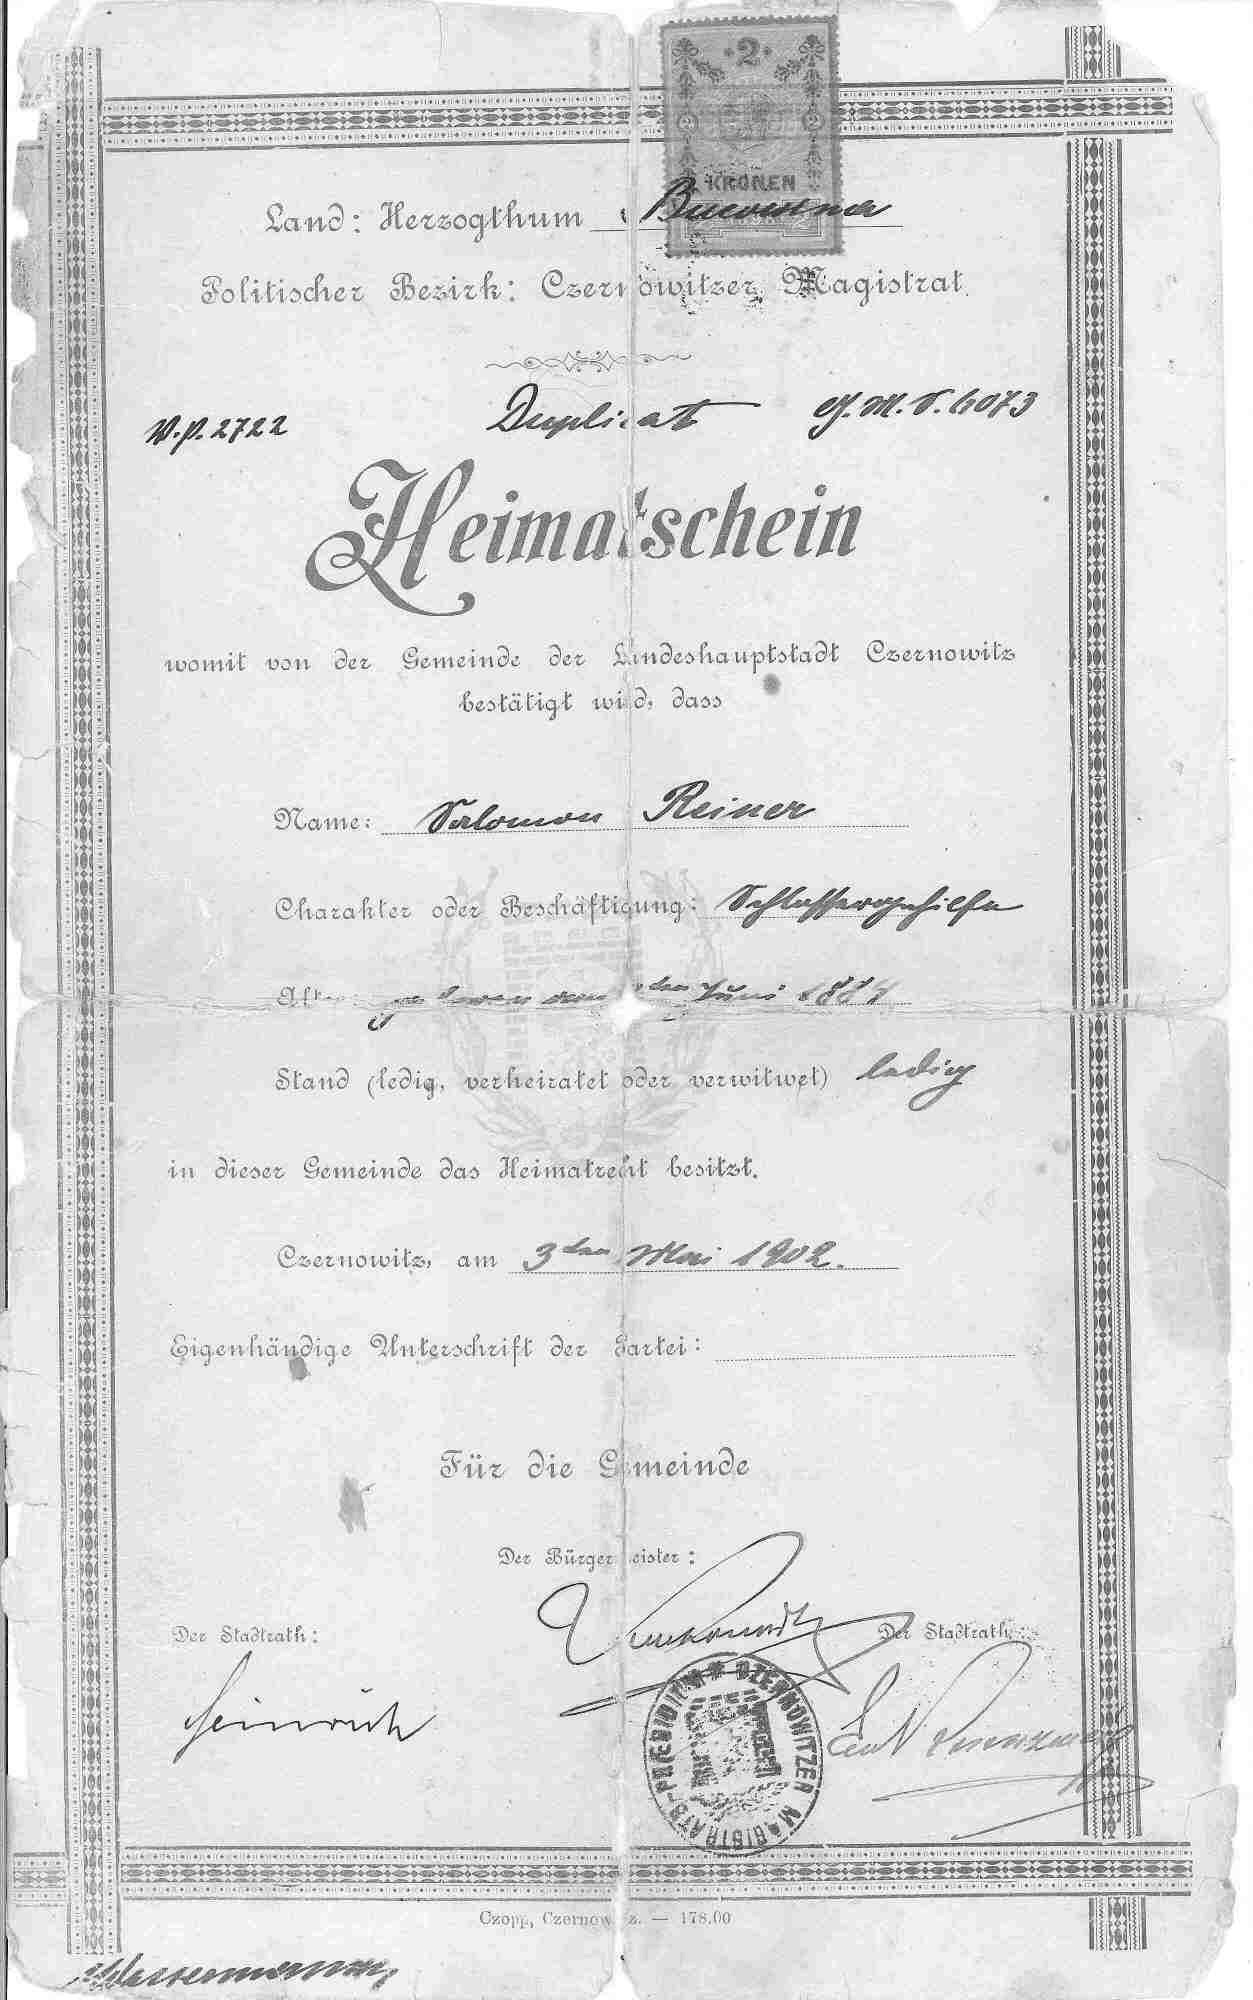 2
KRONEN
Land: Herzogthum Bucowina
Politischer Bezirk: Czernowitzer Magistrat.
V.P. 2722
Duplicat
G.M.S. 6073
Heimatschein
womit von der Gemeinde der Landeshauptstadt Czernowitz
bestätigt wird, dass
Name: Salomon Reiner
Charakter oder Beschäftigung: Schlossergehilfe
Alter: geboren am ten Juni
Stand (ledig, verheiratet oder verwitwet) ledig
in dieser Gemeinde das Heimatrecht besitzt.
Czernowitz, am 3ten Mai 1902.
Eigenhändige Unterschrift der Partei:
Für die Gemeinde
Der Bürgermeister:
Der Stadtrath:
Der Stadtrath:
CZERNOWITZER MAGISTRATS-PRAESIDIUM
Czopp, Czernowitz. — 178.00